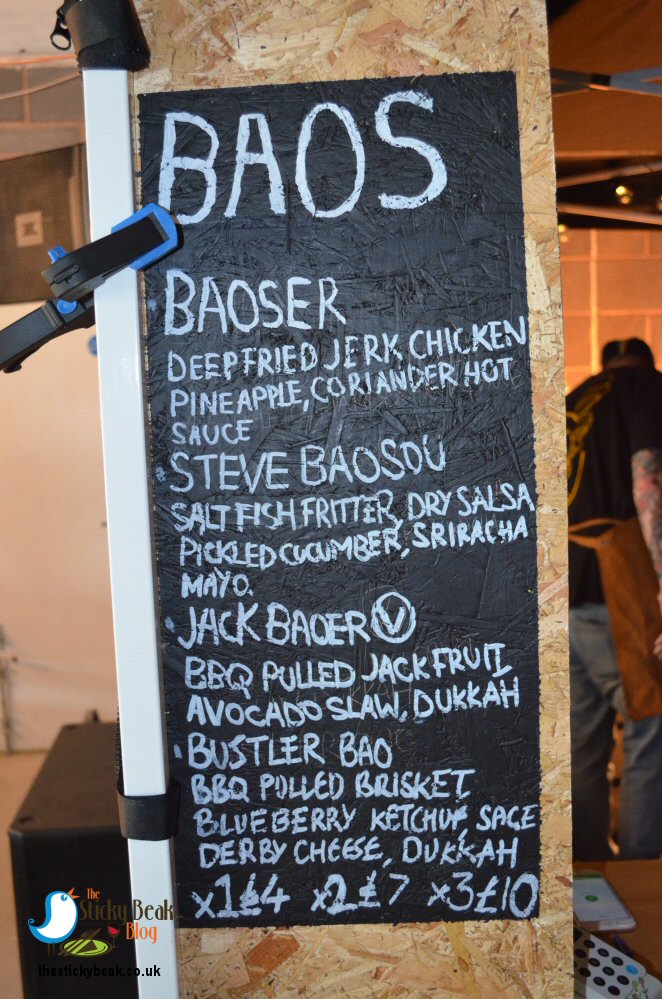 BAOS
BAOSER
DEEPFRIED JERK CHICKEN
PINEAPPLE, CORIANDER HOT
SAUCE
STEVE BAOSOU
SALT FISH FRITTER, DRY SALSA
PICKLED CUCUMBER, SRIRACHA
MAYO.
• JACK BAOER Ⓥ
BBQ PULLED JACKFRUIT
AVOCADO SLAW, DUKKAH
• BUSTLER BAO
BBQ PULLED BRISKET
BLUEBERRY KETCHUP, SAGE
DERBY CHEESE, DUKKAH
x1£4 x2£7 x3£10
The
Sticky Beak
Blog
thestickybeak.co.uk